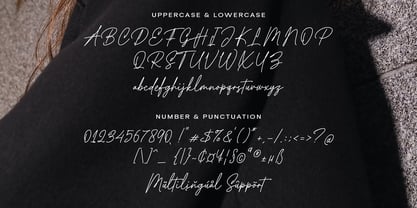 UPPERCASE & LOWERCASE
ABCDEFGHIJKLMNOP
QRSTUVWXYZ
abcdefghijklmnopqrstuvwxyz
NUMBER & PUNCTUATION
01234567890!"#$%&'()*+,-./:;<=>?@
[\]^_{|}-¢¤¥¦§¨©ª®°±µß
Multilingual Support